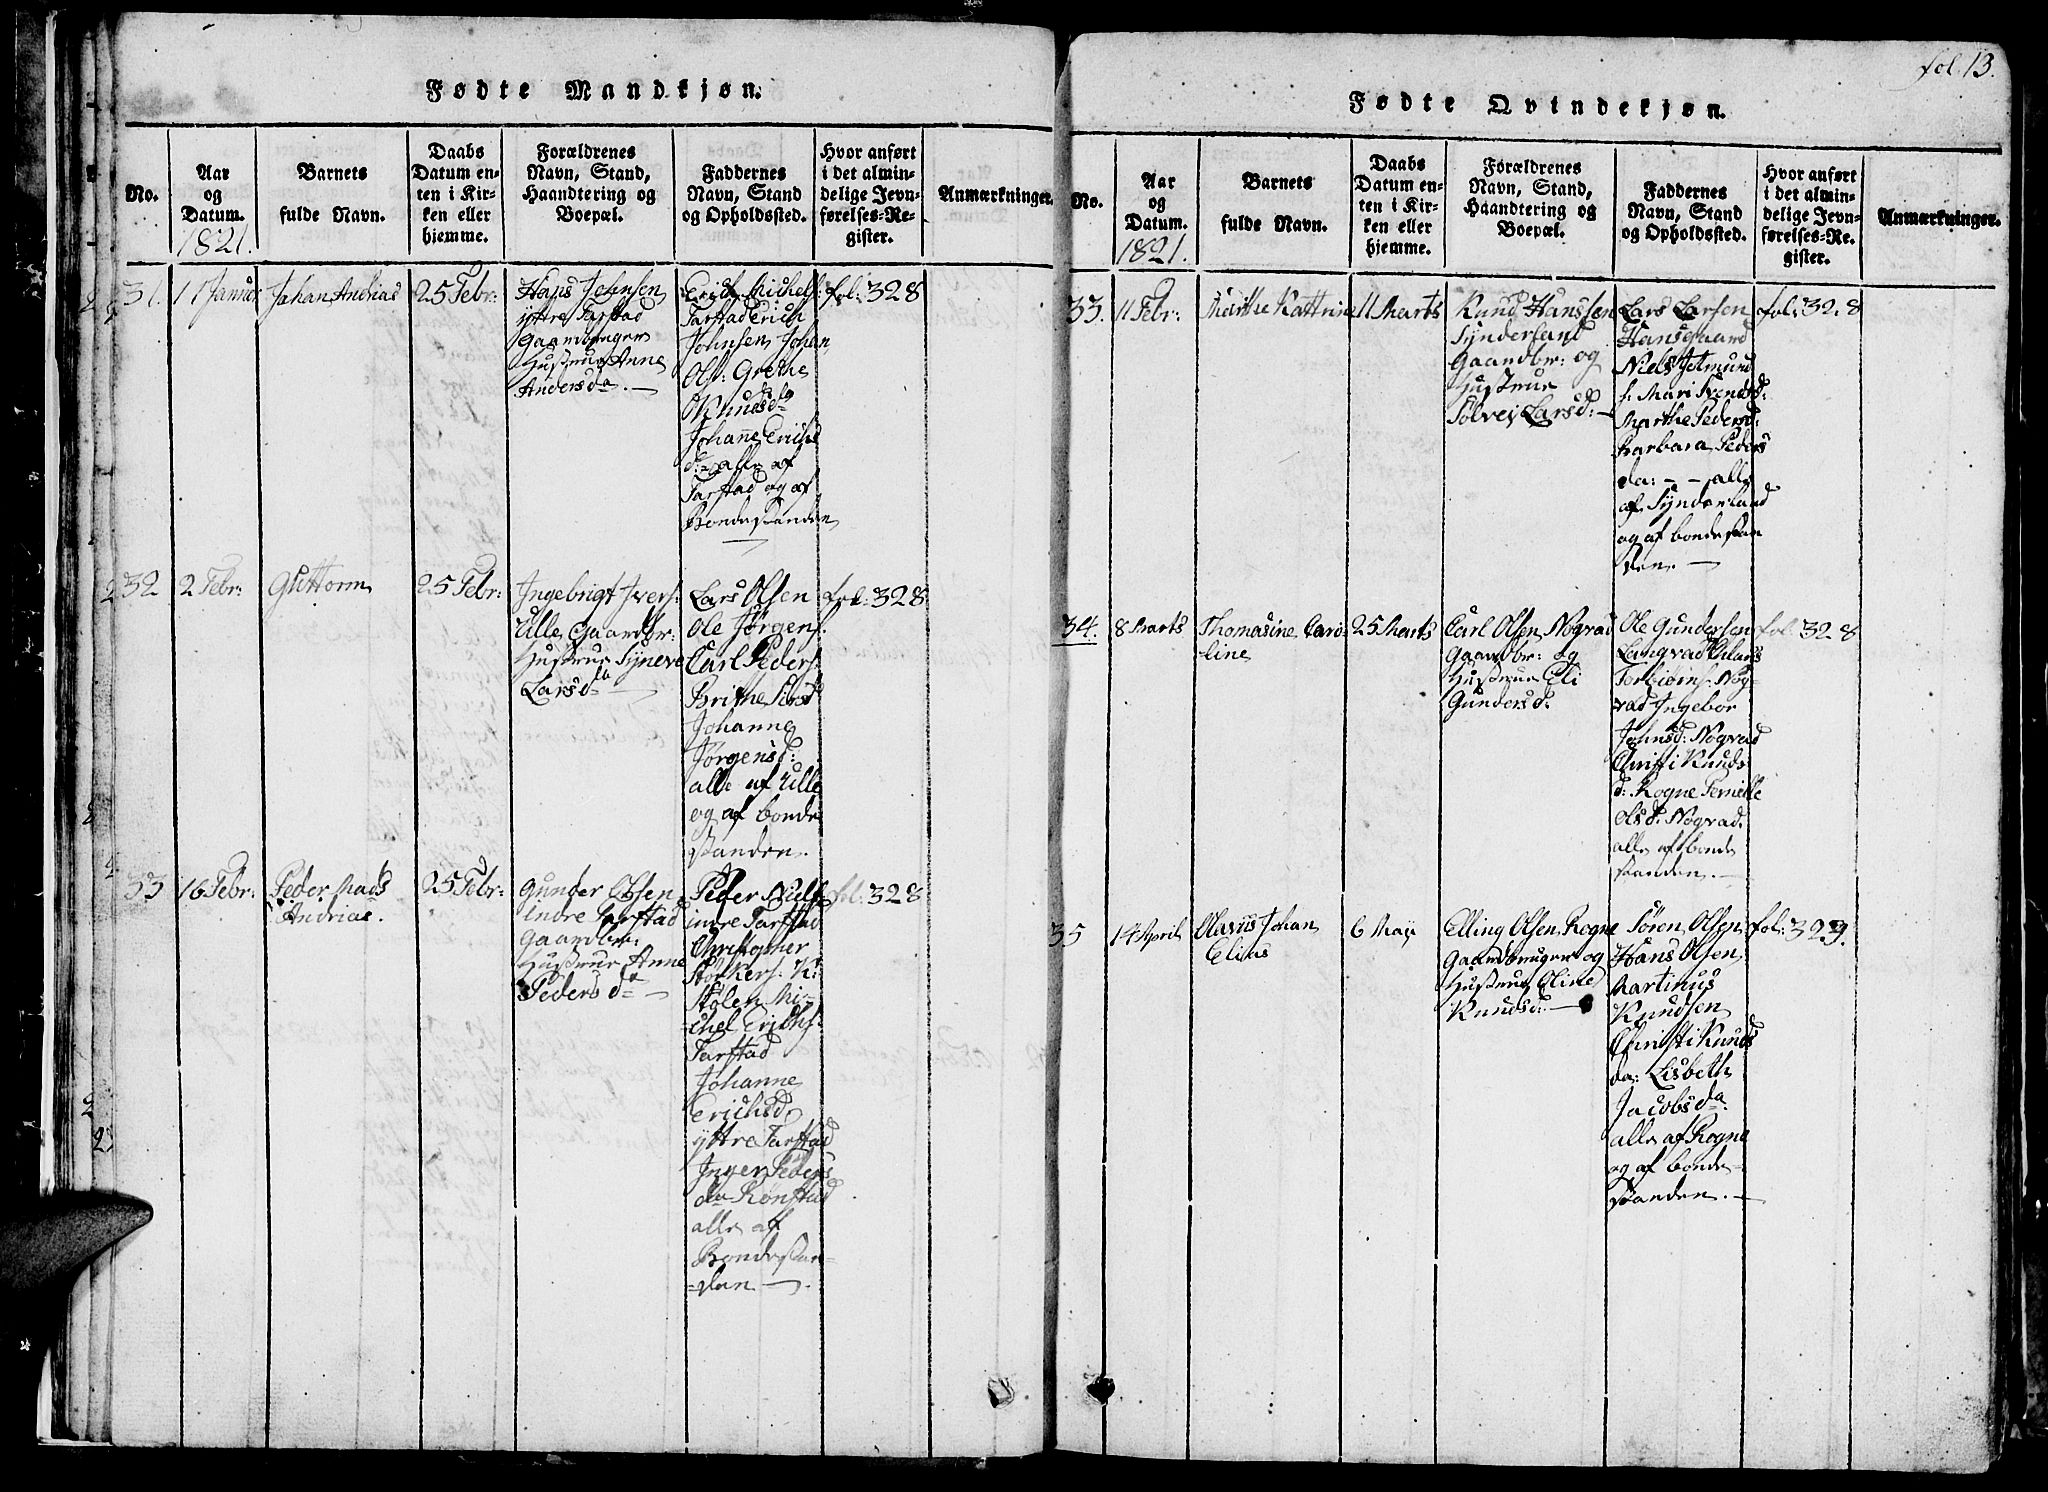 Fødte Mandkjøn.
No.
Aar
og
Datum.
1821.
Barnets
fulde Navn.
Daabs
Datum en-
ten i Kir-
ken eller
hjemme.
Forældrenes
Navn, Stand,
Haandtering og
Boepæl.
Faddernes
Navn, Stand
og Opholdssted.
Hvor anført
i det almin-
delige Jevn-
førelses-Re-
gister.
Anmærkninger.
31.
11 Januar
Johan Andrias
25 Febr:
Hans Johnsen
ytre Tarstad
Gaardbruger
Hustrue Anne
Andersda. —
Erich Michels:
Tarstad Erich
Johnsen, Johan
Ols: Grethe
Knudsda
Johane Erichs
d: alle af
Tarstad og af
Bondestanden
fol: 328
32
2 Febr:
Guttorm
25 Febr:
Ingebrigt Ivers:
Ulle Gaardbr:
Hustrue Syneve
Larsda —
Lars Olsen
Ole Jørgens:
Carl Peders:
Brithe Persd
Johanne
Jørgensd:
alle af Ulle
og af bonde
standen.
fol: 328
33
16 Febr:
Peder Mads
Andrias.
25 Febr:
Gunder Olsen
indre Tarstad
Gaardbr:
Hustrue Anne
Pedersda —
Peder Niels
indre Tarstad
Christopher
Stolen Mi-
chel Erichs:
Tarstad
Johanne
Erichsd
yttre Tarstad
Inger Peders
da Rønstad
alle af
Bondestan-
-den — .
fol. 328
fol. 13.
Fødte Qvindekjøn.
No.
Aar
og
Datum.
1821.
Barnets
fulde Navn.
Daabs
Datum en-
ten i Kir-
ken eller
hjemme.
Forældrenes
Navn, Stand,
Haandtering og
Boepæl.
Faddernes
Navn, Stand
og Opholdssted.
Hvor anført
i det almin-
delige Jevn-
førelses-Re-
gister.
Anmærkninger.
33.
11 Febr:
Marthe Kattrine
11 Marts
Knud Hanssen
Synderland
Gaardbr: og
Hustrue
Sølvei Larsd: —
Lars Larsen
Hansgaard
Niels
s. Mari Svendsd:
Marthe Pedersd:
Barbara Peders
da: - - alle
af Synderland
og af bondestan
den. —
fol: 328
34.
8 Marts
Thomasine Caro-
line
25 Marts
Carl Olsen Nogvad
Gaardbr: og
Hustrue Eli
Gundersd.
Ole Gundersen
Langvad
Torbiørns: Nog-
vad Ingebor
Johnsd: Nogvad
Christi Knuds
d: Rogne Pernelle
Olsd. Nogvad.
alle af bonde
standen. —
fol. 328
35
14 April
Olavus Johan
Elias
6 Maij
Elling Olsen Rogne
Gaardbruger og
Hustrue Eline
Knudsd: —
Søren Olsen
Hans Olsen
Martinus
Knudsen
Christi Knuds
da: Lisbeth
Jacobsda.
alle af Rogne
og af bonde-
standen. —
fol: 329.